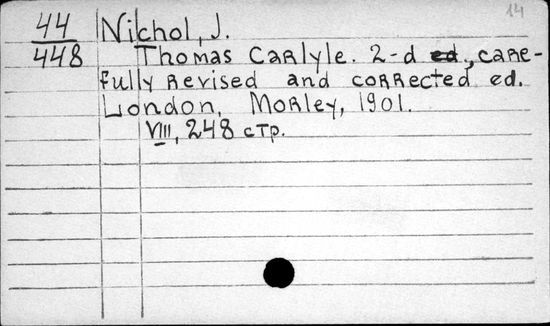 14
44 Nichol, J.
448 Thomas Carlyle. 2-d ed., care-
fully revised and corrected ed.
London, Morley, 1901.
VIII, 248 стр.